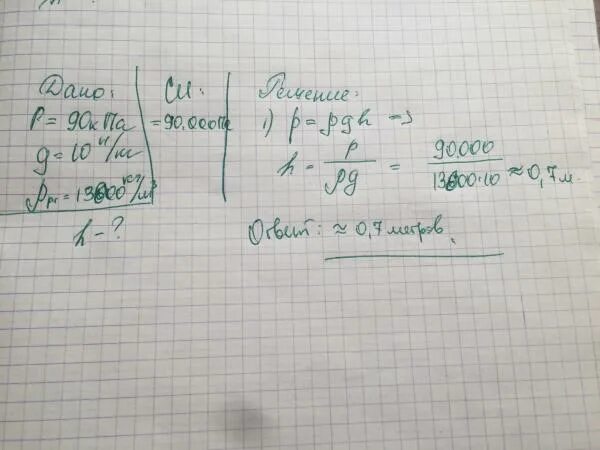 Дано:
P = 90 кПа
g = 10 Н/кг
ρрт = 13600 кг/м³
h - ?
СИ:
= 90.000 Па
Решение:
1) p = ρgh =>
h = p/ρg = 90.000/13600·10 ≈ 0,7 м.
Ответ: ≈ 0,7 метров.